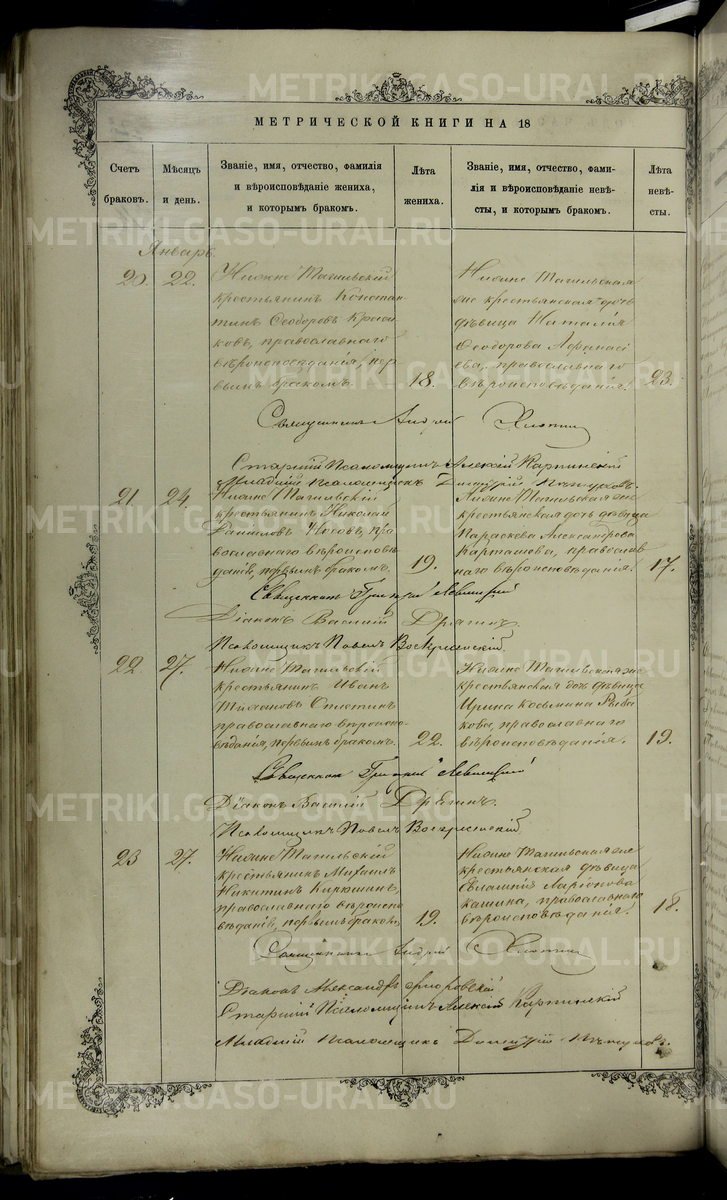 МЕТРИЧЕСКОЙ КНИГИ НА 18
Счетъ браковъ.
Мѣсяцъ и день.
Званіе, имя, отчество, фамилія
и вѣроисповѣданіе жениха,
и которымъ бракомъ.
Лѣта жениха.
Званіе, имя, отчество, фами-
лія и вѣроисповѣданіе невѣ-
сты, и которымъ бракомъ.
Лѣта невѣ-
сты.
Январь.
20. 22.
Нижне Тагильскій
крестьянинъ Констан
тинъ Ѳеодоровъ
ковъ, православнаго
вѣроисповѣданія, пер
вымъ бракомъ.
18.
Нижне Тагильская
же крестьянская дочь
дѣвица Наталія
Ѳеодорова Аѳанась
ева, православнаго
вѣроисповѣданія.
23.
Священникъ Андрей
Старшій Псаломщикъ Алексій Карпинскій
Младшій Псаломщикъ Димитрій
21. 24.
Нижне Тагильскій
крестьянинъ Николай
Даниловъ Носовъ, пра
вославнаго вѣроисповѣ
данія, первымъ бракомъ.
19.
Нижне Тагильская же
крестьянская дочь дѣвица
Параскева Александрова
Карташова, православ
наго вѣроисповѣданія.
17.
Священникъ Григорій Левицкій
Діаконъ Василій Дрягинъ.
Псаломщикъ Павелъ Воскресенскій.
22. 27.
Нижне Тагильскій
крестьянинъ Иванъ
православнаго вѣроиспо-
вѣданія, первымъ бракомъ.
22.
Нижне Тагильская же
крестьянская дочь дѣвица
Ирина Косьмина Рыба
кова, православнаго
вѣроисповѣданія.
19.
Священникъ Григорій Левицкій
Діаконъ Василій Дрягинъ.
Псаломщикъ Павелъ Воскресенскій.
23 27.
Нижне Тагильскій
крестьянинъ Михаилъ
Никитинъ Кирюшинъ,
православнаго вѣроиспо
вѣданія, первымъ бракомъ,
19.
Нижне Тагильская же
крестьянская дѣвица
Евлампія Ларіонова
Кашина, православнаго
вѣроисповѣданія.
18.
Священникъ Андрей
Діаконъ Александръ
Старшій Псаломщикъ Алексій Карпинскій
Младшій Псаломщикъ Димитрій
METRIKI.GASO-URAL.RU